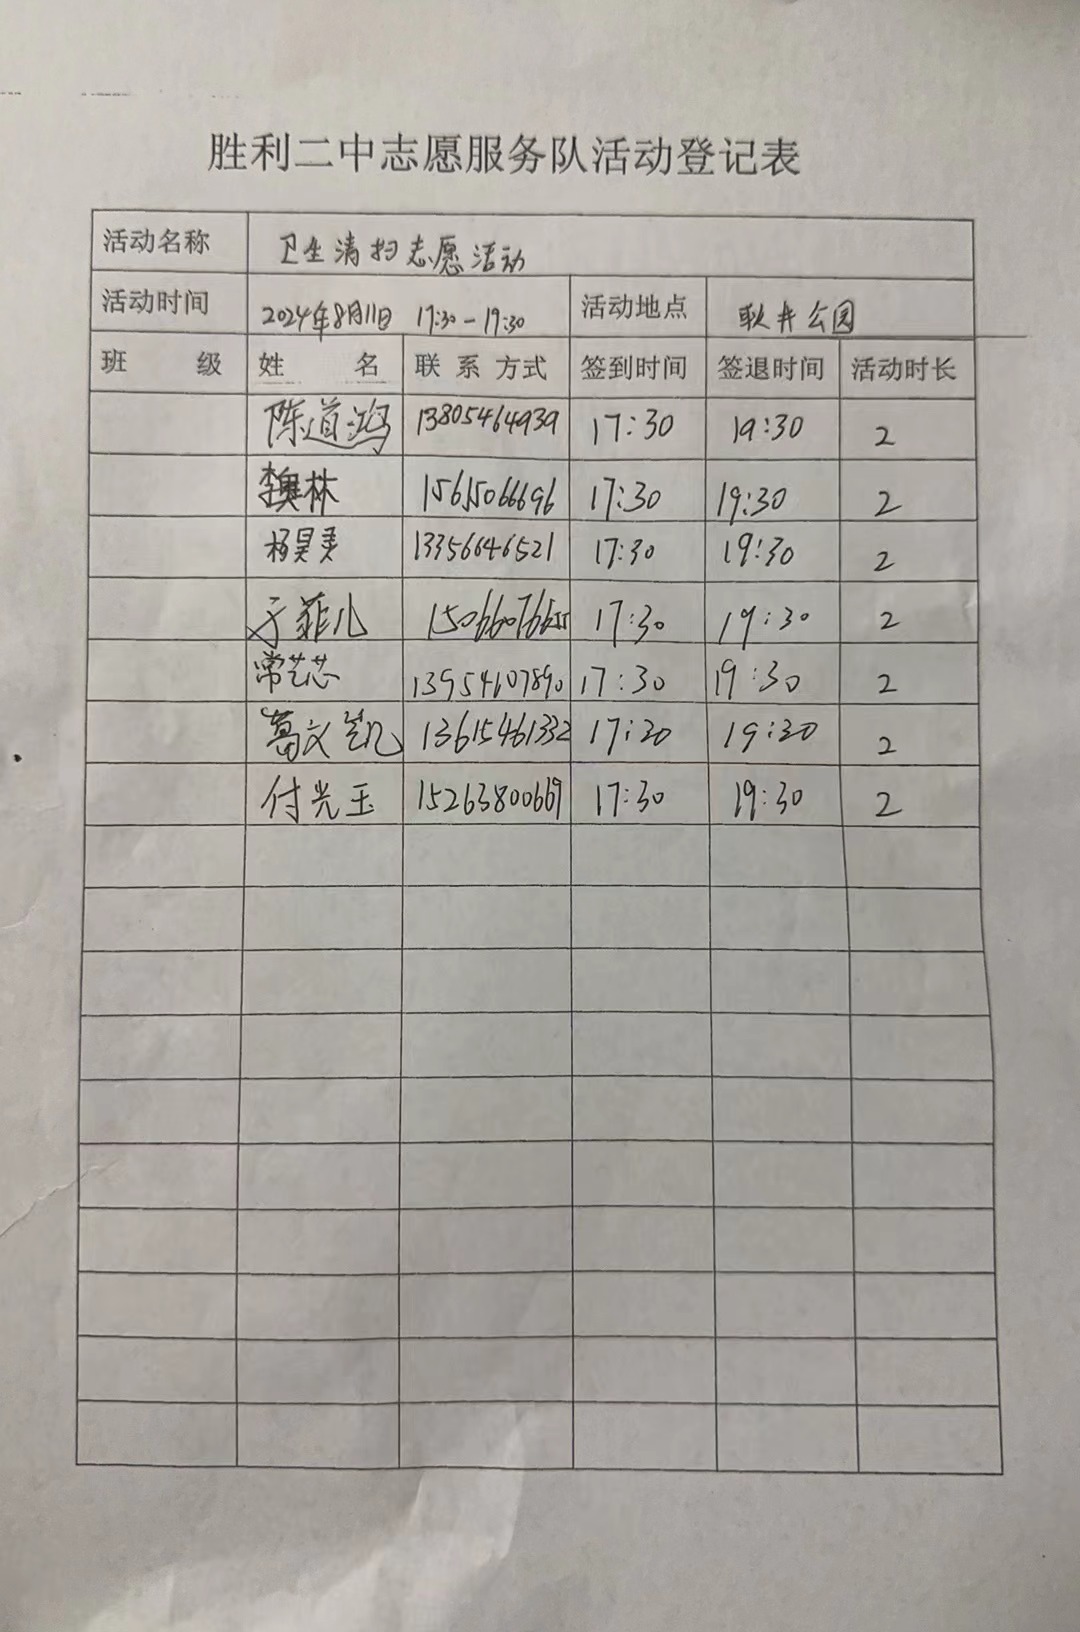 胜利二中志愿服务队活动登记表
活动名称 卫生清扫志愿活动
活动时间 2024年8月11日 17:30-19:30 活动地点 耿井公园
班 级 姓 名 联 系 方式 签到时间 签退时间 活动时长
陈道鸿 13805464939 17:30 19:30 2
李奥林 15615066696 17:30 19:30 2
杨昊 13356646521 17:30 19:30 2
于菲儿 17:30 19:30 2
常艺芯 13954607890 17:30 19:30 2
葛文凯 13615461332 17:30 19:30 2
付光玉 15263800669 17:30 19:30 2